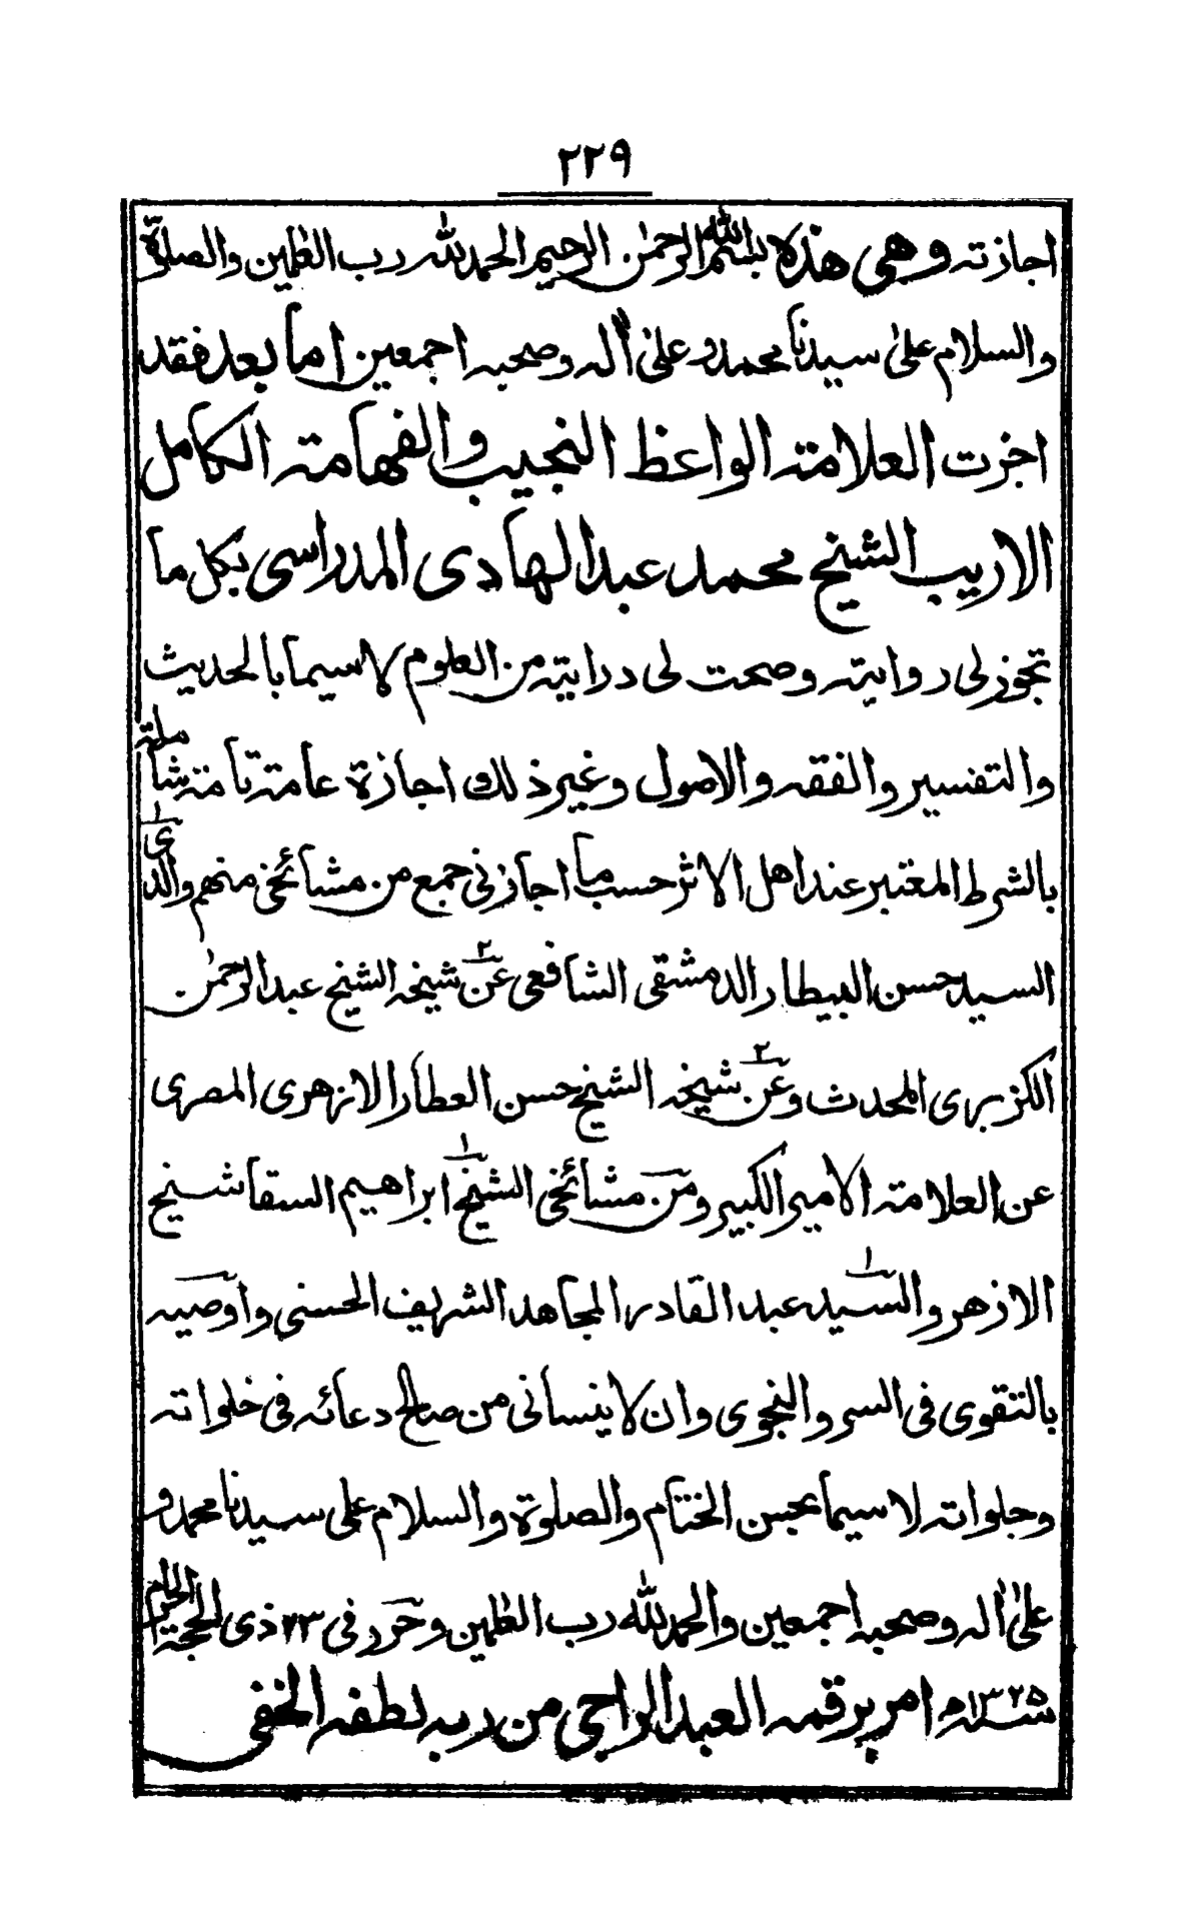 ٢٢٩
اجازته وهی هذه بسم الله الرحمٰن الرحیم الحمد لله رب العٰلمین والصلوٰة
والسلام علیٰ سیدنا محمد و علیٰ اٰله وصحبه اجمعین اما بعد فقد
اجزت العلامة الواعظ النجیب والفهامة الکامل
الاریب الشیخ محمد عبد الهادی المدراسی بکل ما
تجوز لی روایته وصحت لی درایته من العلوم لا سیما بالحدیث
والتفسیر والفقه والاصول وغیر ذلك اجازة عامة تامة شاملة
بالشرط المعتبر عند اهل الاثر حسب ما اجازنی جمع من مشائخی منهم والدی
السید حسن البیطار الدمشقی الشافعی عن٢ شیخه الشیخ عبد الرحمٰن
الکزبری المحدث وعن٢ شیخه الشیخ حسن العطار الازهری المصری
عن العلامة الامیر الکبیر ومن مشائخی الشیخ١ ابراهیم السقا شیخ
الازهر والسید١ عبد القادر المجاهد الشریف الحسنی واوصیه
بالتقوی فی السر والنجوی وان لا ینسانی من صالح دعائه فی خلواته
وجلواته لا سیما بحسن الختام والصلوة والسلام علی سیدنا محمد و
علیٰ اٰله وصحبه اجمعین والحمد لله رب العٰلمین وحرر فی ٢٣ ذی الحجة الحرام
سنه ١٣٢٥ه امر برقمه العبد الراجی من ربه لطفه الخفی